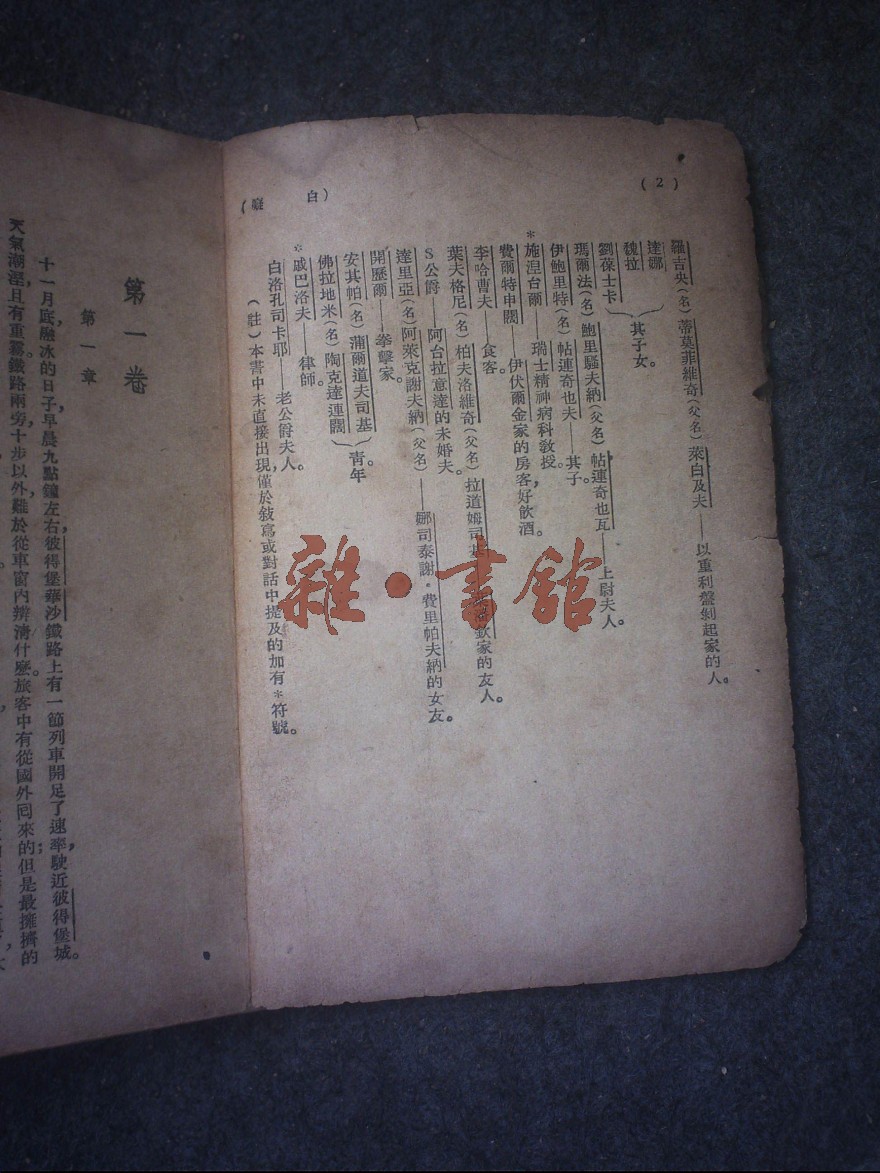 (2)
(白癡)
羅吉央(名)蒂莫菲維奇(父名)萊白及夫——以重利盤剝起家的人。
達娜
魏拉
劉葆士卡
}其子女。
瑪爾法(名)鮑里騷夫納(父名)帖連奇也瓦——上尉夫人。
伊鮑里特(名)帖連奇也夫——其子。
*施涅台爾——瑞士精神病科教授。
費爾特申闊——伊伏爾金家的房客,好飲酒。
李哈曹夫——食客。
葉夫格尼(名)柏夫洛維奇(父名)拉道姆司基——家的友人。
S公爵——阿台拉意達的未婚夫。
達里亞(名)阿萊克謝夫納(父名)——娜司泰謝·費里帕夫納的女友。
開歷爾——拳擊家。
安其帕(名)蒲爾道夫司基
佛拉地米(名)陶克達連闊
}青年。
*戚巴洛夫——律師。
白洛孔司卡耶——老公爵夫人。
(註)本書中未直接出現,僅於敍寫或對話中提及的加有*符號。
第一卷
第一章
十一月底,融冰的日子,早晨九點鐘左右,彼得堡華沙鐵路上有一節列車開足了速率,駛近彼得堡城。
天氣潮溼,且有重霧,鐵路兩旁十步以外,難於從車窗內辨清什麼。旅客中有從國外囘來的;但是最擁擠的
雜·書館